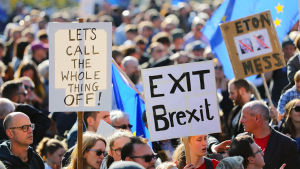 LETS
CALL THE
WHOLE
THING
OFF!
EXIT
BREXIT
ETON
MESS